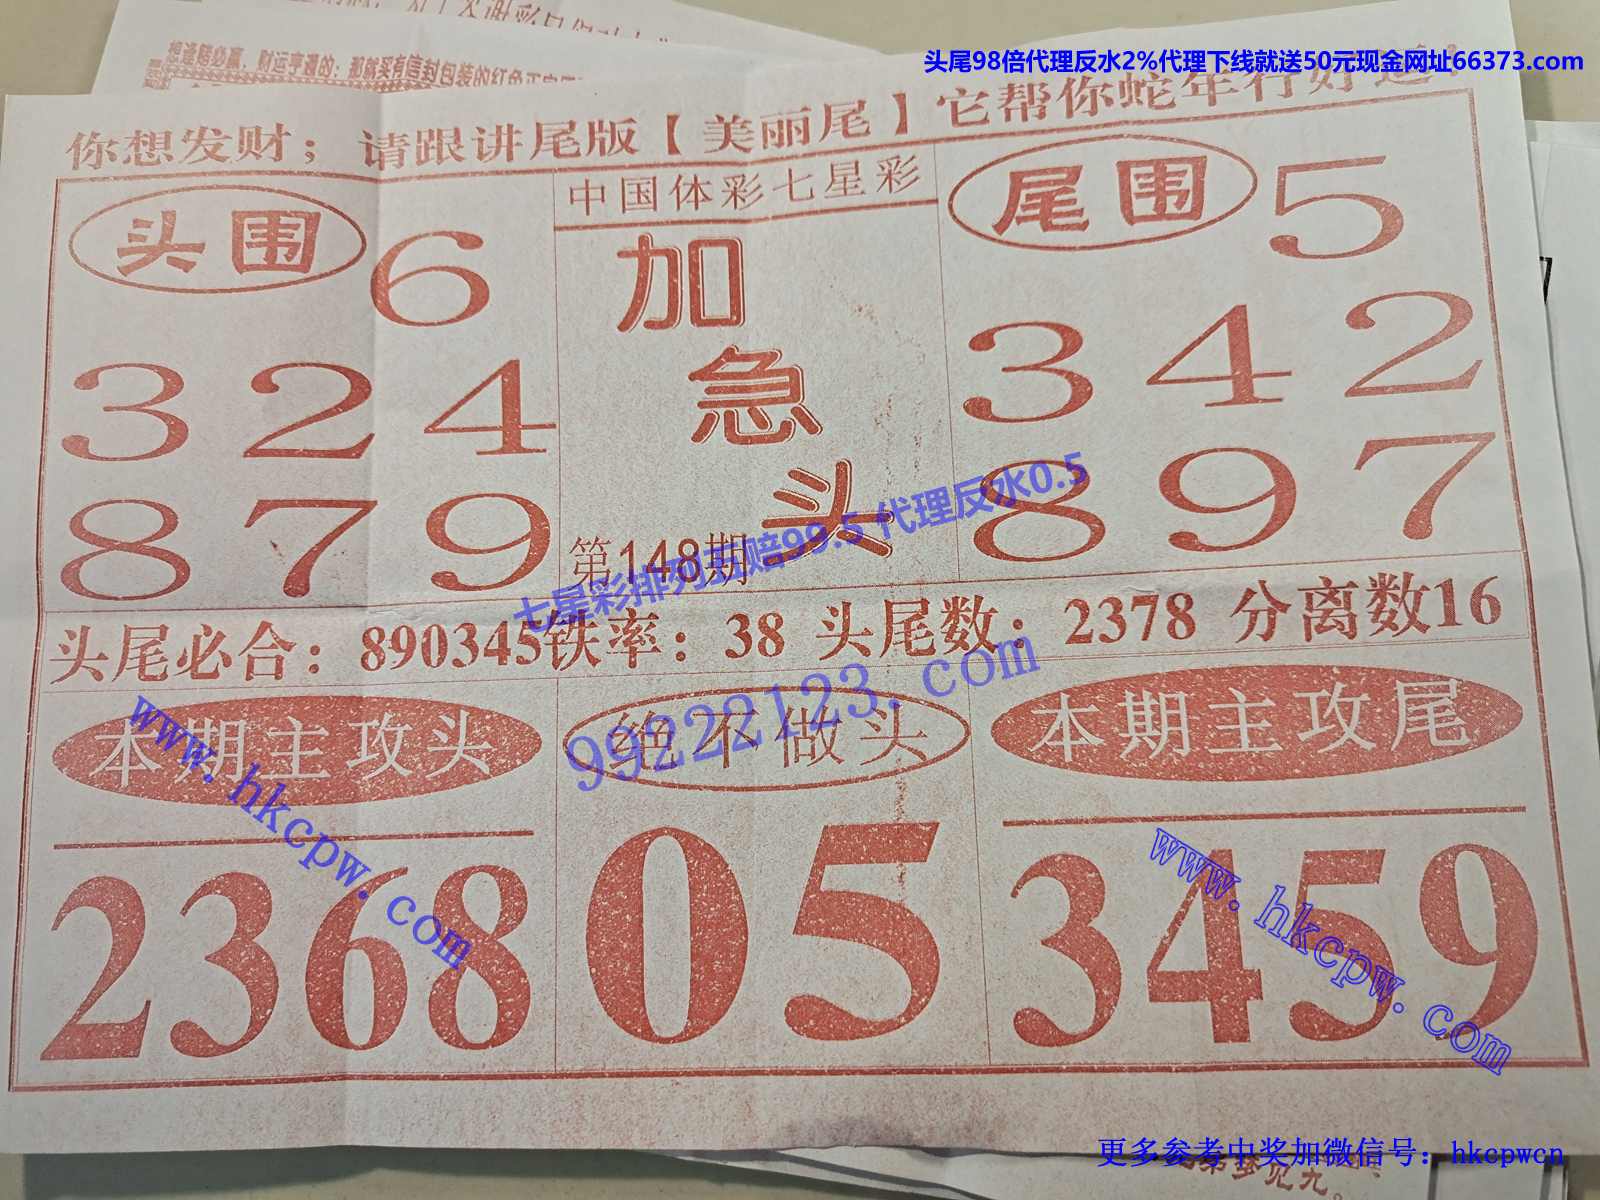 头尾98倍代理反水2%代理下线就送50元现金网址66373.com
想逢赌必赢，财运亨通的：那就买有信封包装的红色
你想发财；请跟讲尾版【美丽尾】它帮你蛇年行好运！
中国体彩七星彩
头围 6
3 2 4
8 7 9
加
急
头
第148期
尾围 5
3 4 2
8 9 7
七星彩排列五赔99.5 代理反水0.5
头尾必合：890345铁率：38 头尾数：2378 分离数16
99222123.com
本期主攻头
2368
绝不做头
05
本期主攻尾
3459
www.hkcpw.com
www.hkcpw.com
更多参考中奖加微信号：hkcpwcn